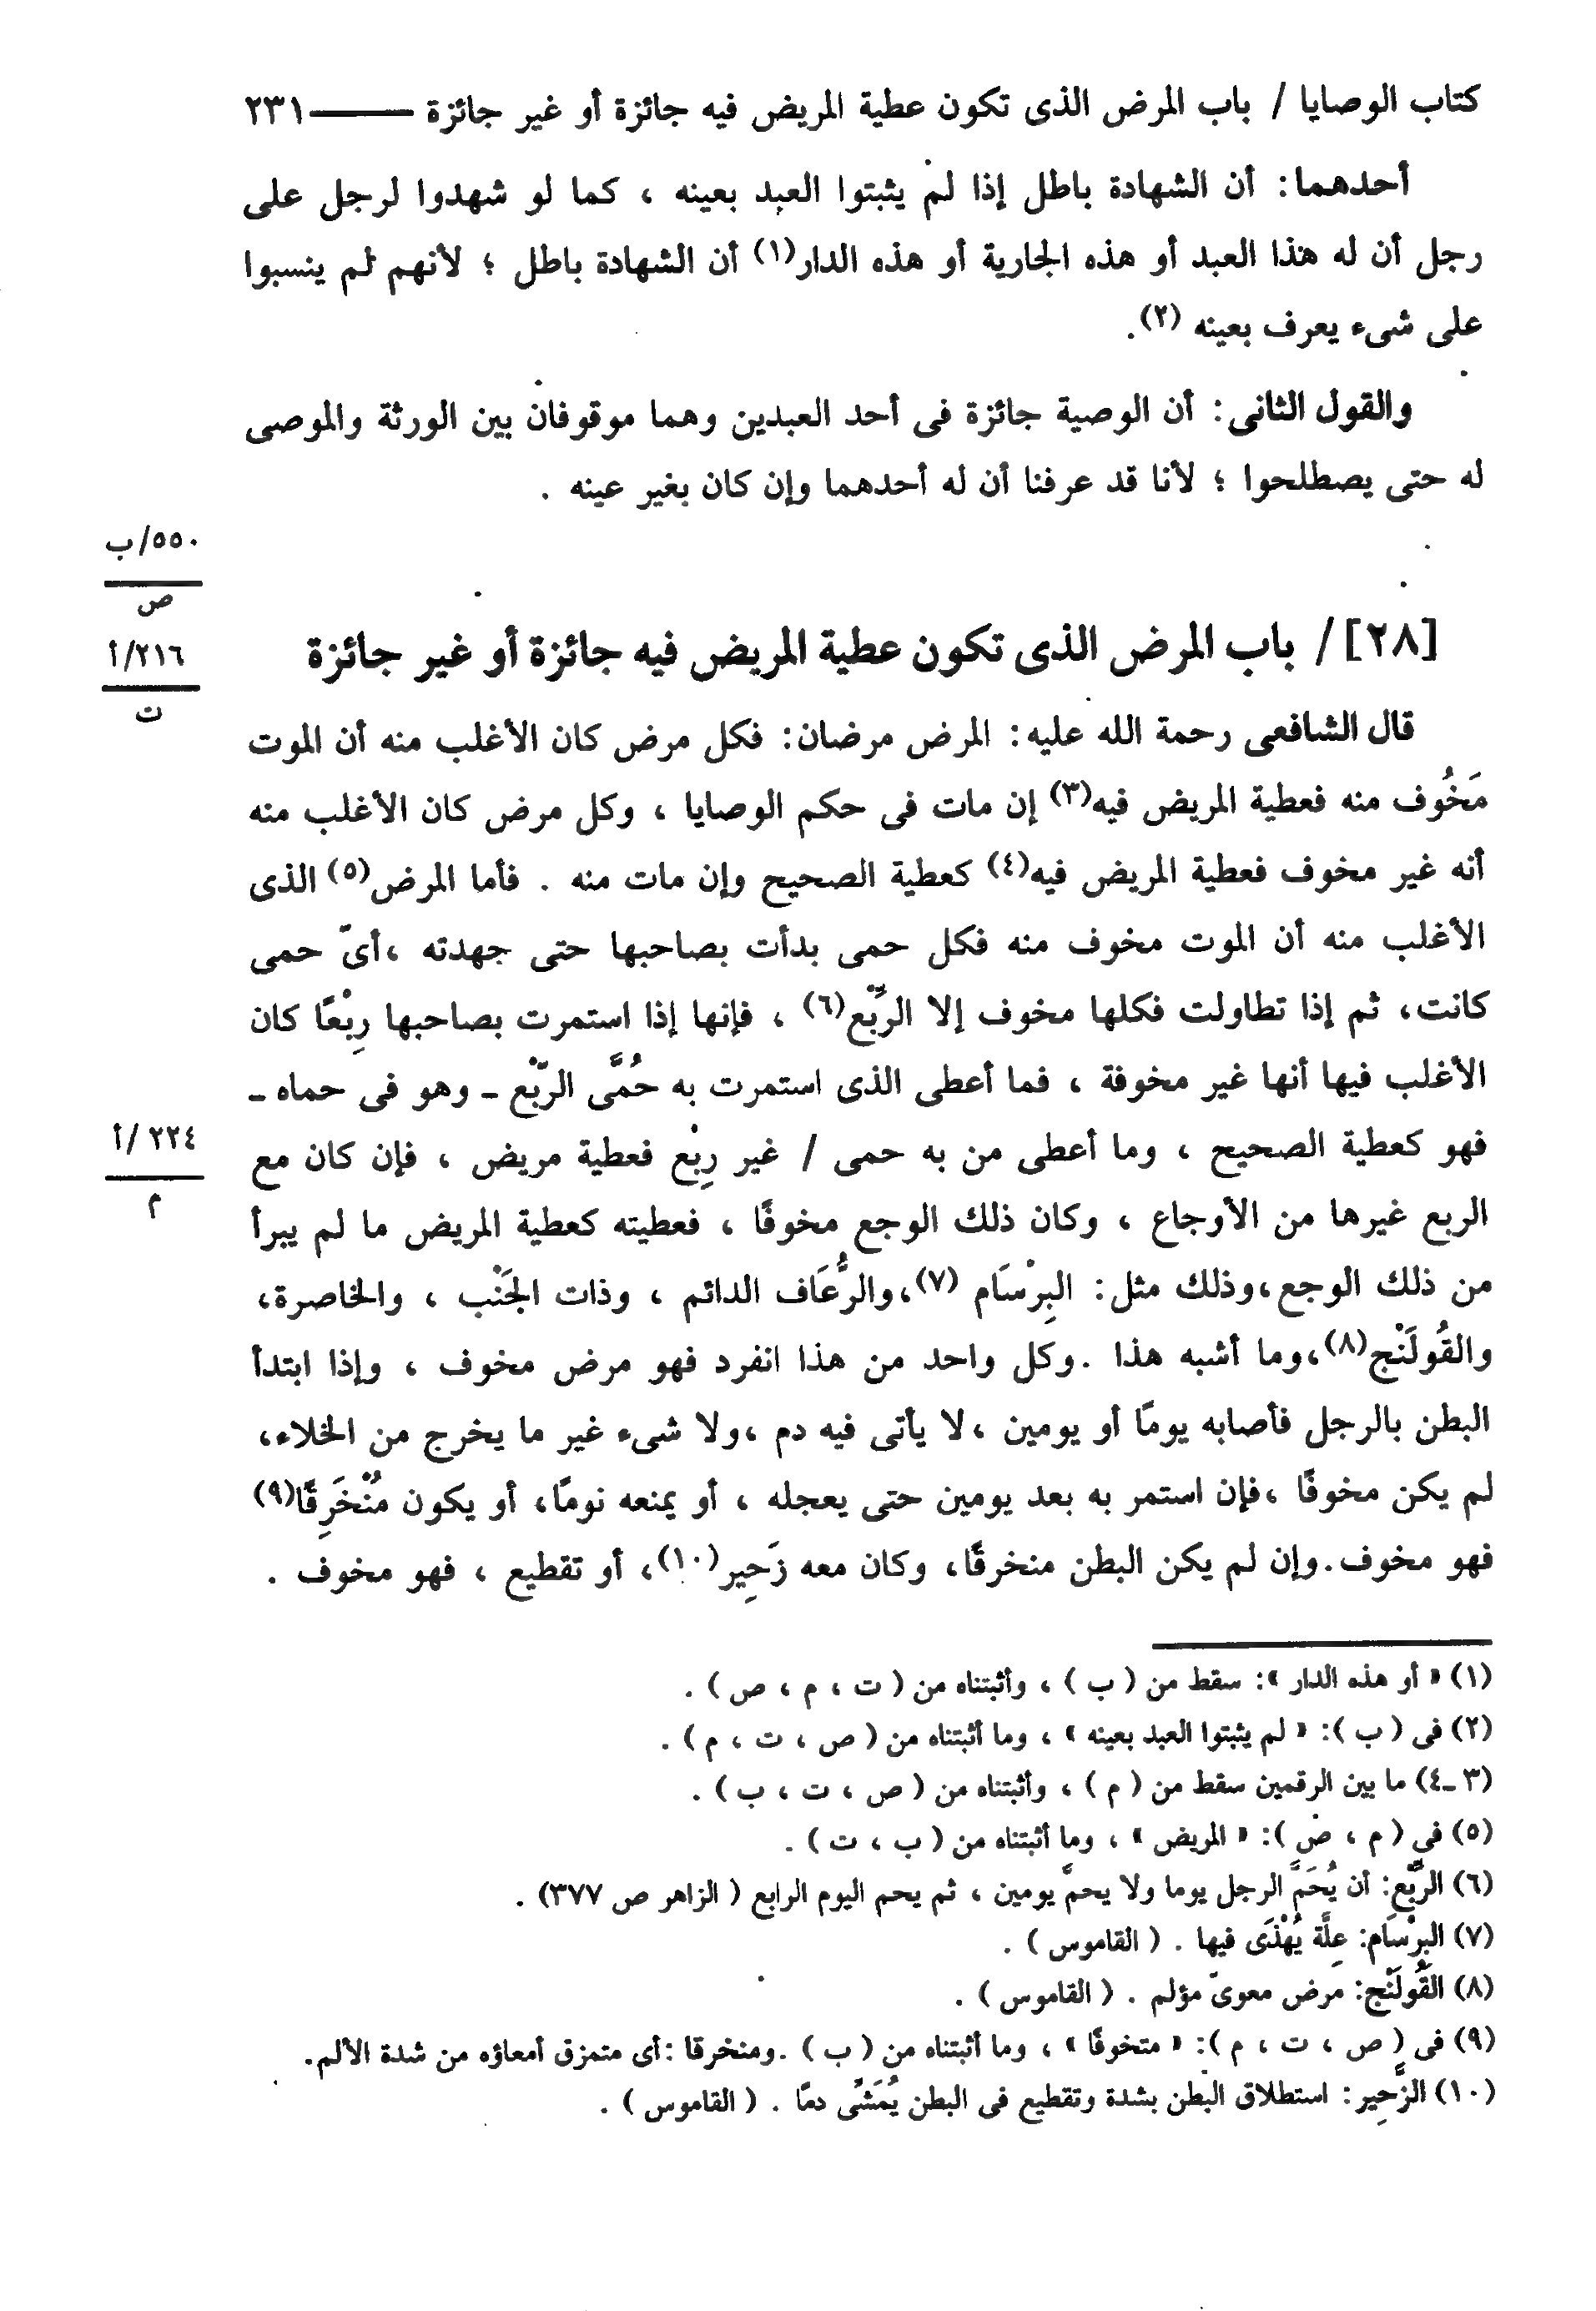 كتاب الوصايا / باب المرض الذى تكون عطية المريض فيه جائزة أو غير جائزة ——— ٢٣١
أحدهما: أن الشهادة باطل إذا لم يثبتوا العبد بعينه ، كما لو شهدوا لرجل على
رجل أن له هذا العبد أو هذه الجارية أو هذه الدار(١) أن الشهادة باطل ؛ لأنهم لم ينسبوا
على شىء يعرف بعينه (٢).
والقول الثانى: أن الوصية جائزة فى أحد العبدين وهما موقوفان بين الورثة والموصى
له حتى يصطلحوا ؛ لأنا قد عرفنا أن له أحدهما وإن كان بغير عينه .
٥٥٠/ب
ص
[٢٨] / باب المرض الذى تكون عطية المريض فيه جائزة أو غير جائزة
٢١٦/أ
ت
قال الشافعى رحمة الله عليه: المرض مرضان: فكل مرض كان الأغلب منه أن الموت
مَخُوف منه فعطية المريض فيه(٣) إن مات فى حكم الوصايا ، وكل مرض كان الأغلب منه
أنه غير مخوف فعطية المريض فيه(٤) كعطية الصحيح وإن مات منه . فأما المرض(٥) الذى
الأغلب منه أن الموت مخوف منه فكل حمى بدأت بصاحبها حتى جهدته ،أىّ حمى
كانت، ثم إذا تطاولت فكلها مخوف إلا الرِّبْع(٦) ، فإنها إذا استمرت بصاحبها رِبْعًا كان
الأغلب فيها أنها غير مخوفة ، فما أعطى الذى استمرت به حُمَّى الرّبْع ـ وهو فى حماه ـ
فهو كعطية الصحيح ، وما أعطى من به حمى / غير رِبْع فعطية مريض ، فإن كان مع
٢٢٤ /أ
م
الربع غيرها من الأوجاع ، وكان ذلك الوجع مخوفًا ، فعطيته كعطية المريض ما لم يبرأ
من ذلك الوجع،وذلك مثل: البِرْسَام (٧)،والرُّعَاف الدائم ، وذات الجَنْب ، والخاصرة،
والقُولَنْج(٨)،وما أشبه هذا .وكل واحد من هذا انفرد فهو مرض مخوف ، وإذا ابتدأ
البطن بالرجل فأصابه يومًا أو يومين ،لا يأتى فيه دم ،ولا شىء غير ما يخرج من الخلاء،
لم يكن مخوفًا ،فإن استمر به بعد يومين حتى يعجله ، أو يمنعه نومًا، أو يكون مُنْخَرِقًا(٩)
فهو مخوف.وإن لم يكن البطن منخرقًا، وكان معه زَحِير(١٠)، أو تقطيع ، فهو مخوف .
(١) « أو هذه الدار »: سقط من ( ب ) ، وأثبتناه من ( ت ، م ، ص ) .
(٢) فى ( ب ): « لم يثبتوا العبد بعينه » ، وما أثبتناه من ( ص ، ت ، م ) .
(٣ ـ٤) ما بين الرقمين سقط من ( م ) ، وأثبتناه من ( ص ، ت ، ب ) .
(٥) فى ( م ، ص ): « المريض » ، وما أثبتناه من ( ب ، ت ) .
(٦) الرِّبْع: أن يُحَمَّ الرجل يوما ولا يحمَّ يومين ، ثم يحم اليوم الرابع ( الزاهر ص ٣٧٧) .
(٧) البِرْسَام: عِلَّة يُهْذَى فيها . ( القاموس ) .
(٨) القُولَنْج: مرض معوىّ مؤلم . ( القاموس ) .
(٩) فى ( ص ، ت ، م ): « متخوفًا » ، وما أثبتناه من ( ب ) .ومنخرقا :أى متمزق أمعاؤه من شدة الألم.
(١٠) الزَّحِير: استطلاق البطن بشدة وتقطيع فى البطن يُمَشِّى دمًا . ( القاموس ) .